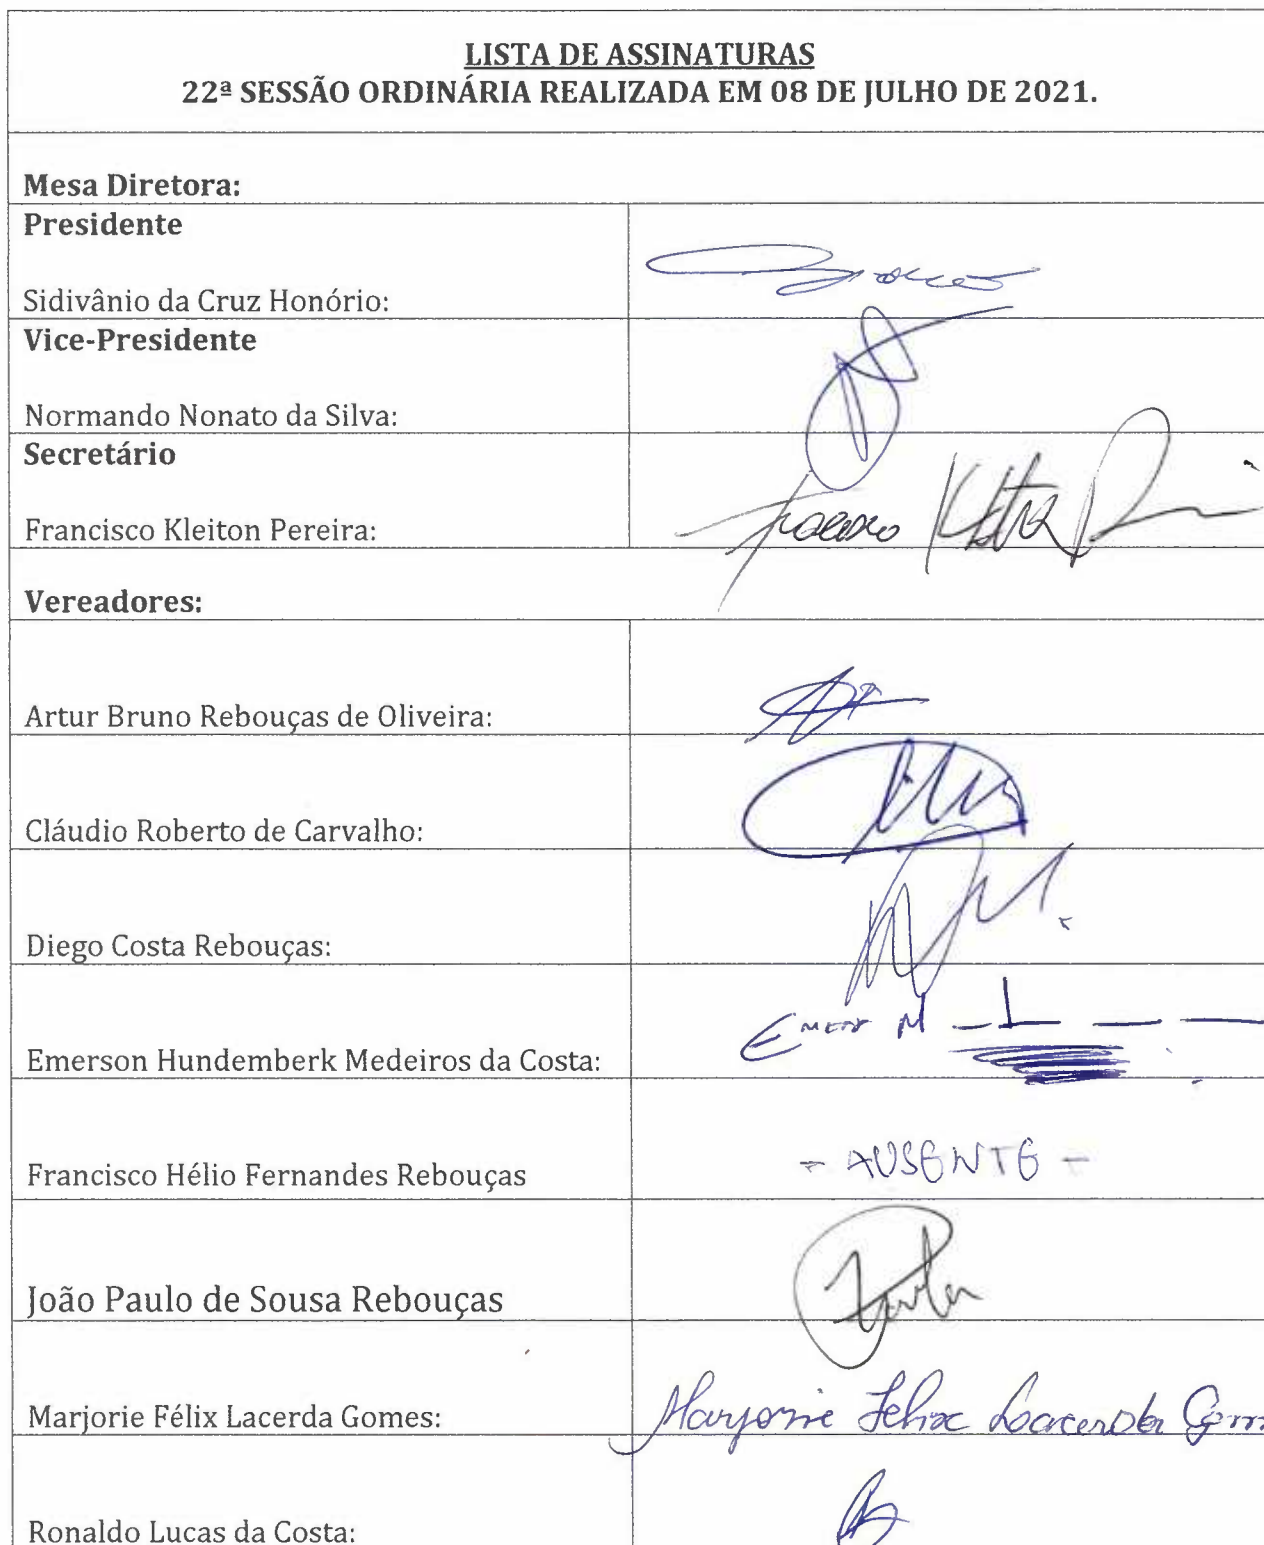 LISTA DE ASSINATURAS
22ª SESSÃO ORDINÁRIA REALIZADA EM 08 DE JULHO DE 2021.
Mesa Diretora:
Presidente
Sidivânio da Cruz Honório:
Vice-Presidente
Normando Nonato da Silva:
Secretário
Francisco Kleiton Pereira:
Vereadores:
Artur Bruno Rebouças de Oliveira:
Cláudio Roberto de Carvalho:
Diego Costa Rebouças:
Emerson Hundemberk Medeiros da Costa:
Francisco Hélio Fernandes Rebouças - AUSENTE -
João Paulo de Sousa Rebouças
Marjorie Félix Lacerda Gomes: Marjorie Felix Lacerda Gom
Ronaldo Lucas da Costa: